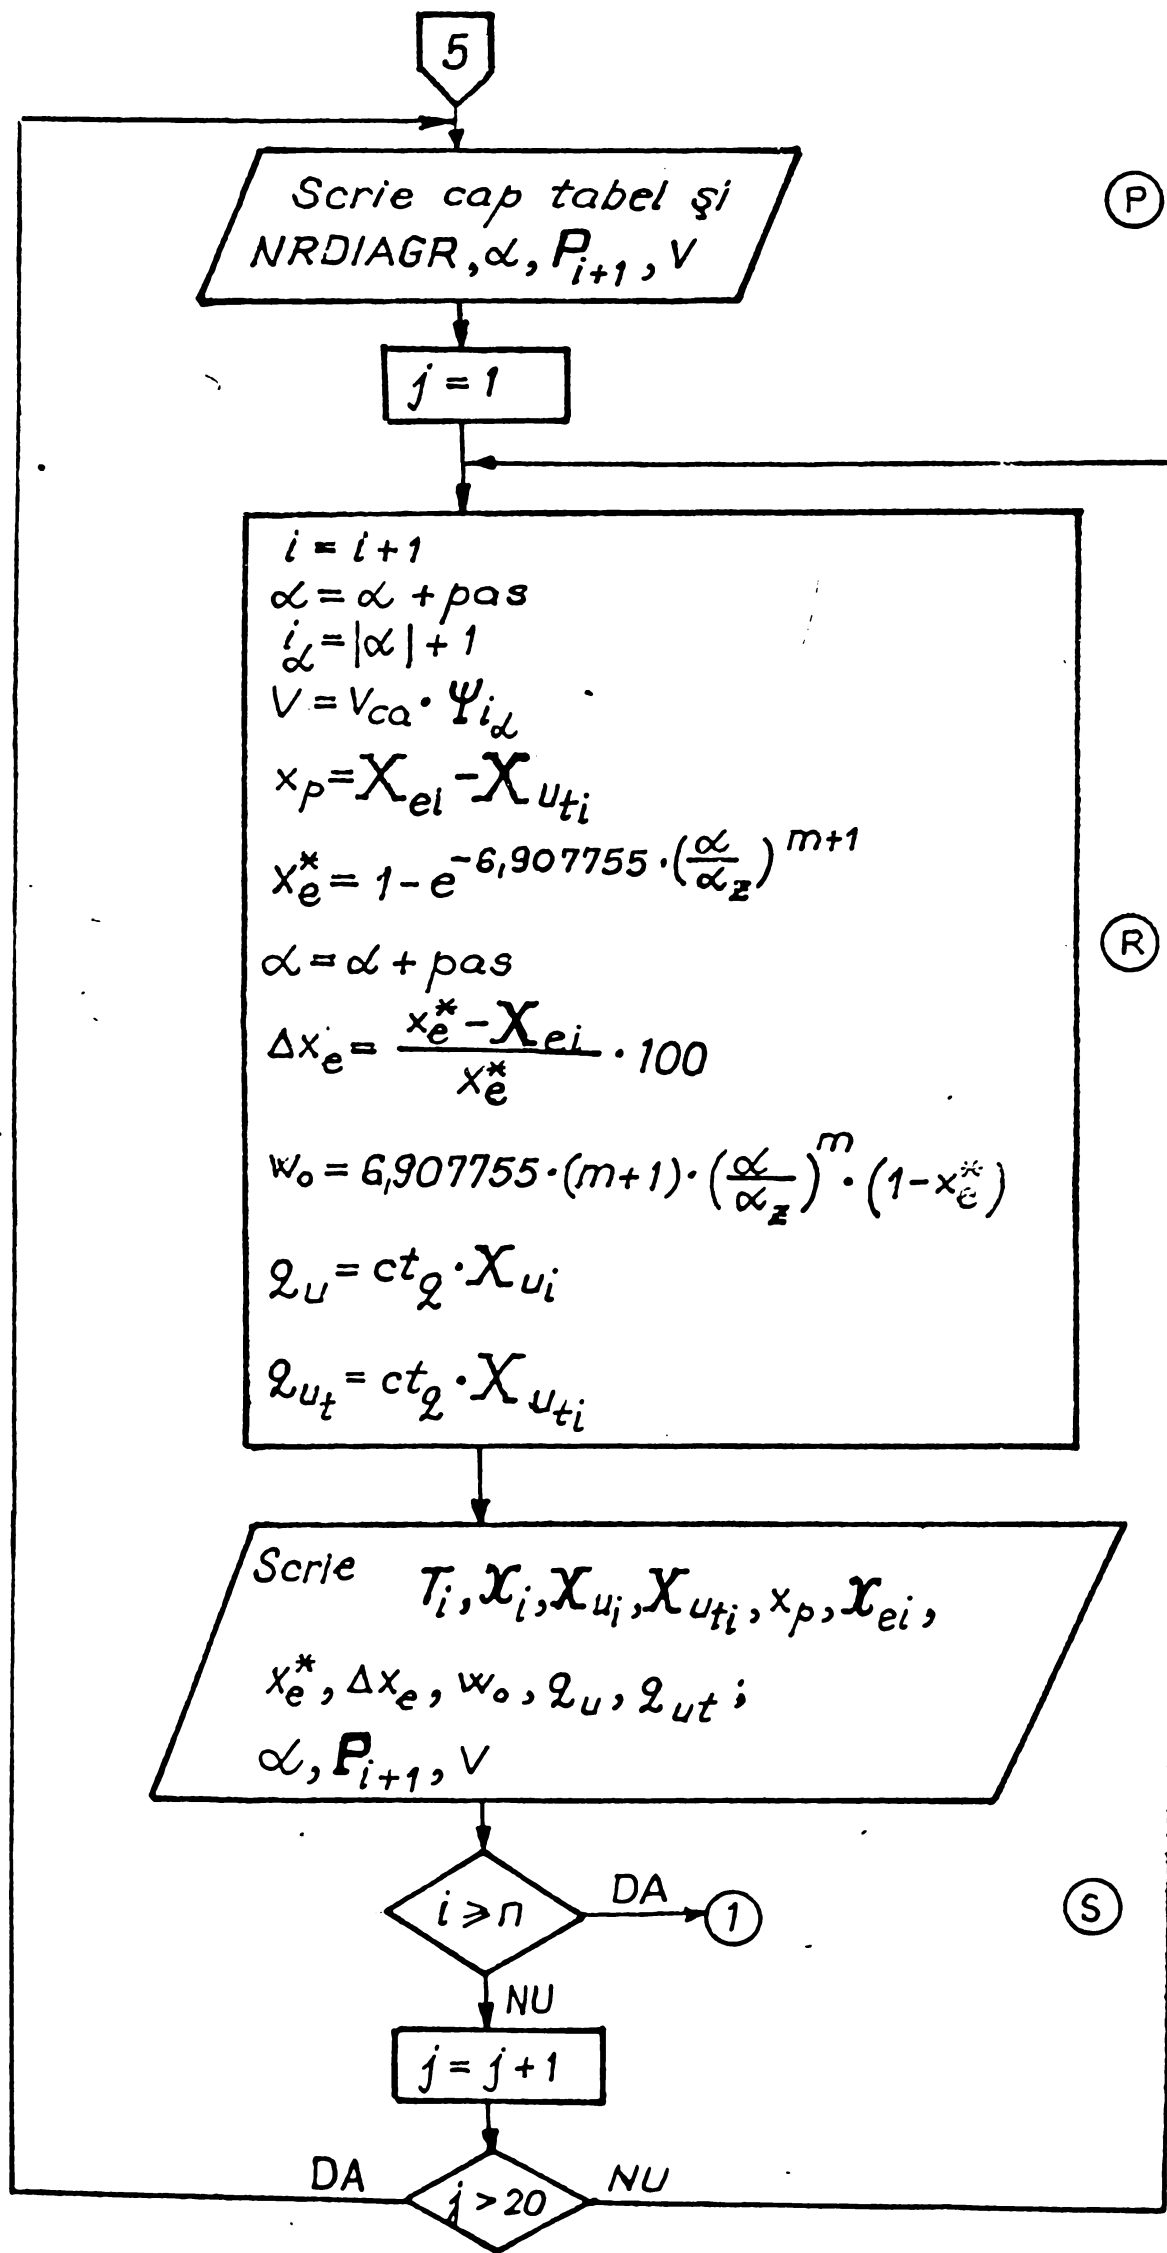 5
Scrie cap tabel şi
NRDIAGR, α, P_{i+1}, V
P
j = 1
i = i+1
α = α + pas
i_α = |α| + 1
V = V_{ca} · Ψ_{i_α}
x_p = X_{ei} - X_{u_{ti}}
x_e^* = 1 - e^{-6,907755 · (α/α_z)^{m+1}}
R
α = α + pas
Δx_e = \frac{x_e^* - X_{ei}}{x_e^*} · 100
w_o = 6,907755 · (m+1) · (α/α_z)^m · (1 - x_e^*)
q_u = ct_q · X_{u_i}
q_{u_t} = ct_q · X_{u_{ti}}
Scrie T_i, X_i, X_{u_i}, X_{u_{ti}}, x_p, X_{ei},
x_e^*, Δx_e, w_o, q_u, q_{ut};
α, P_{i+1}, V
i ⩾ n DA 1
S
NU
j = j + 1
DA j > 20 NU